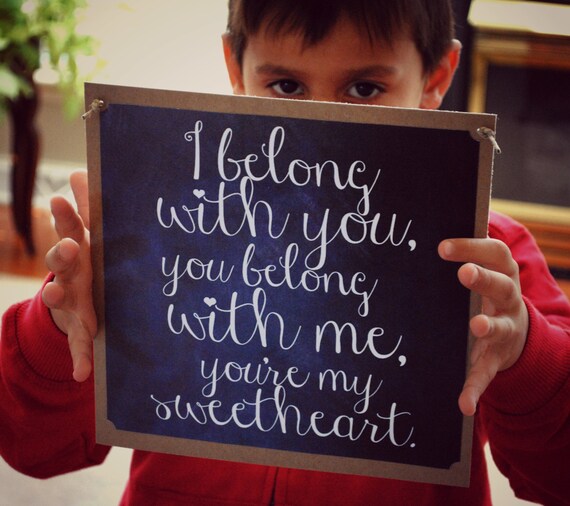 I belong
with you,
you belong
with me,
you're my
sweetheart.